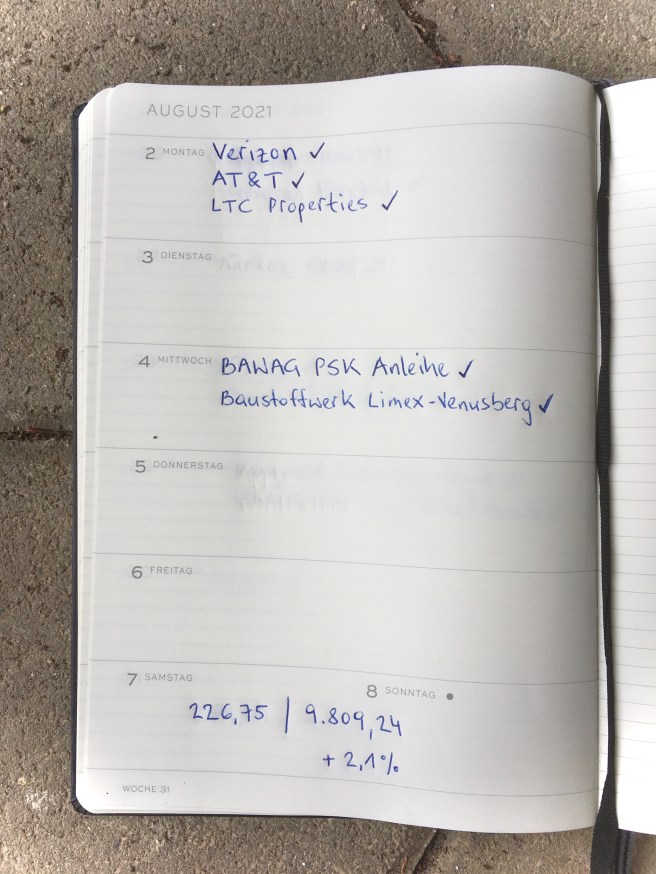 AUGUST 2021
2 MONTAG Verizon ✓
AT&T ✓
LTC Properties ✓
3 DIENSTAG
4 MITTWOCH BAWAG PSK Anleihe ✓
Baustoffwerk Limex-Venusberg ✓
5 DONNERSTAG
6 FREITAG
7 SAMSTAG
8 SONNTAG
226,75 | 9.809,24
+ 2,1%
WOCHE 31